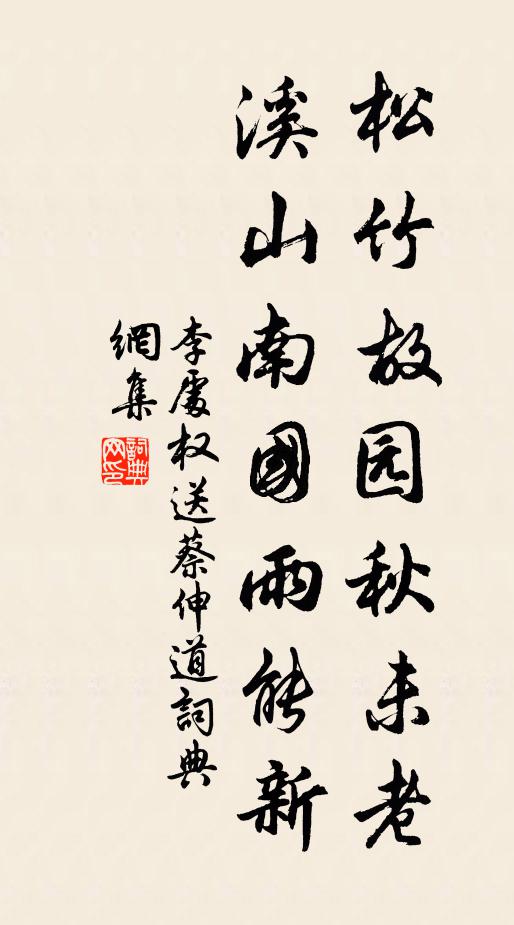 松竹故园秋未老
溪山南國雨能新
李處权送蔡伸道詞典
網集
詞典
网印